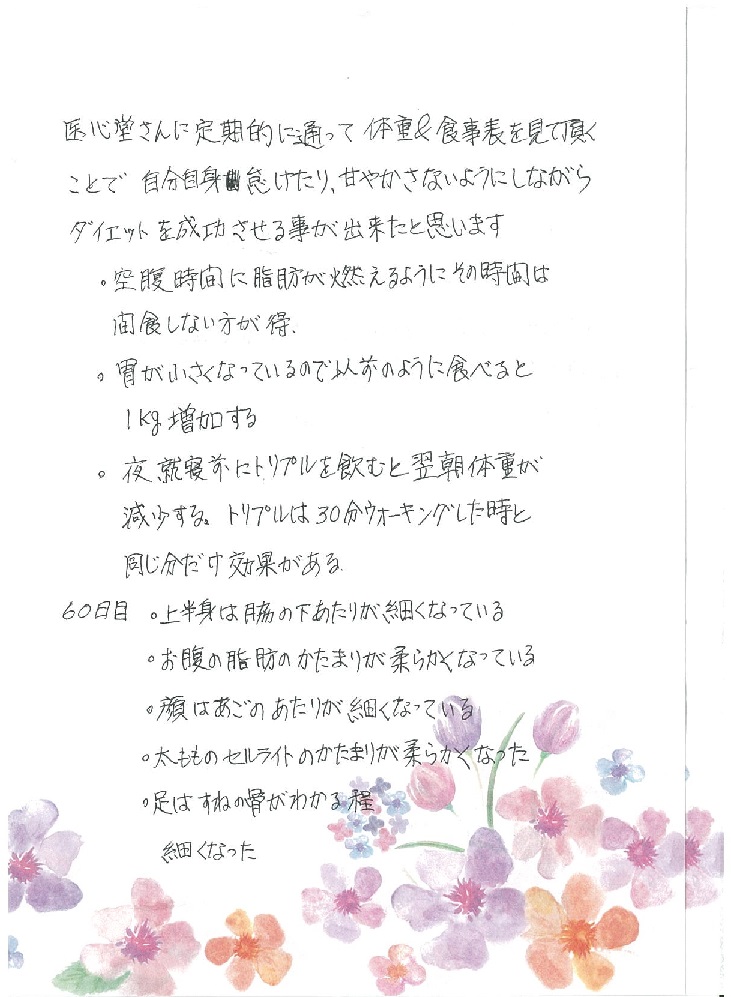 医心堂さんに定期的に通って 体重&食事表を見て頂く
ことで 自分自身 怠けたり、甘やかさないようにしながら
ダイエットを成功させる事が出来たと思います
。空腹時間に脂肪が燃えるようにその時間は
間食しない方が得.
。胃が小さくなっているので以前のように食べると
1kg増加する
。夜就寝前にトリプルを飲むと翌朝体重が
減少する。トリプルは30分ウォーキングした時と
同じ分だけ効果がある.
60日目 。上半身は脇の下あたりが細くなっている
。お腹の脂肪のかたまりが柔らかくなっている
。顔はあごのあたりが細くなっている
。太もものセルライトのかたまりが柔らかくなった
。足はすねの骨がわかる程
細くなった